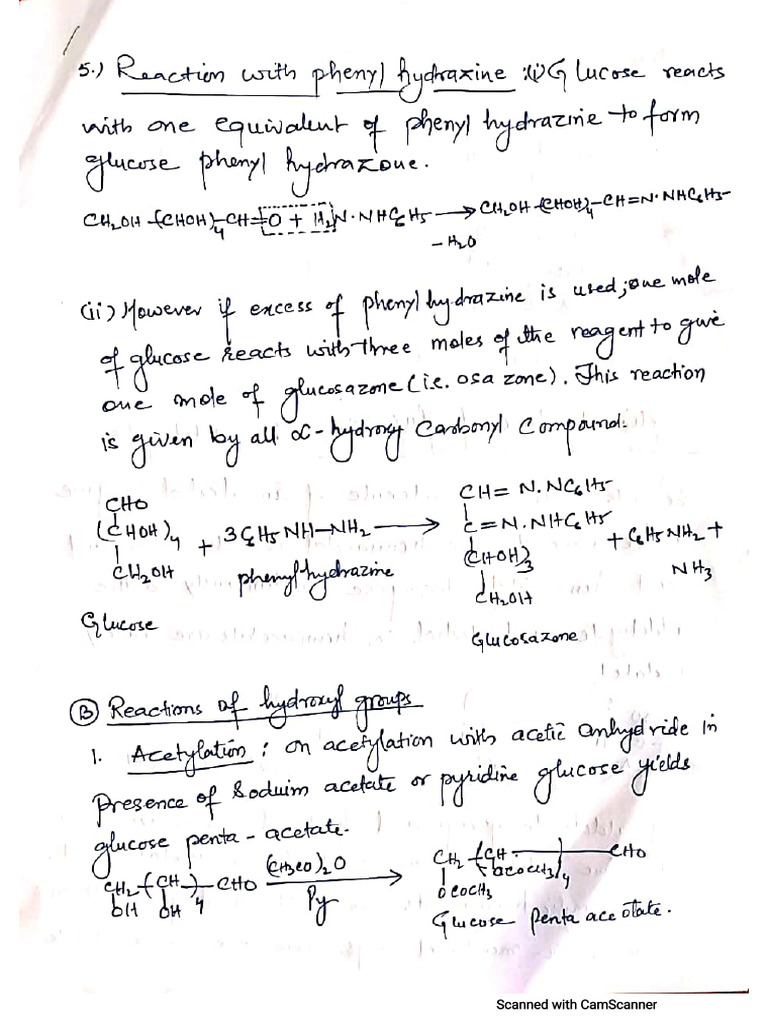 5.) Reaction with phenyl hydrazine :(i) Glucose reacts
with one equivalent of phenyl hydrazine to form
glucose phenyl hydrazone.
CH₂OH-(CHOH)₄-CH=O + H₂N·NHC₆H₅ → CH₂OH-(CHOH)₄-CH=N·NHC₆H₅-
-H₂O
(ii) However if excess of phenyl hydrazine is used; one mole
of glucose reacts with three moles of the reagent to give
one mole of glucosazone (i.e. osa zone). This reaction
is given by all α-hydroxy Carbonyl Compound.
CHO
(CHOH)₄ + 3C₆H₅NH-NH₂ →
CH₂OH phenylhydrazine
Glucose
CH=N.NC₆H₅
C=N.NHC₆H₅
(CHOH)₃ + C₆H₅NH₂ +
NH₃
CH₂OH
Glucosazone
(B) Reactions of hydroxyl groups
1. Acetylation: On acetylation with acetic anhydride in
Presence of Soduim acetate or pyridine glucose yields
glucose penta-acetate.
CH₂-(CH)₄-CHO (CH₃CO)₂O → CH₂-(CH)₄-CHO
OH OH Py OCOCH₃ OCOCH₃
Glucose Penta ace otate.
Scanned with CamScanner